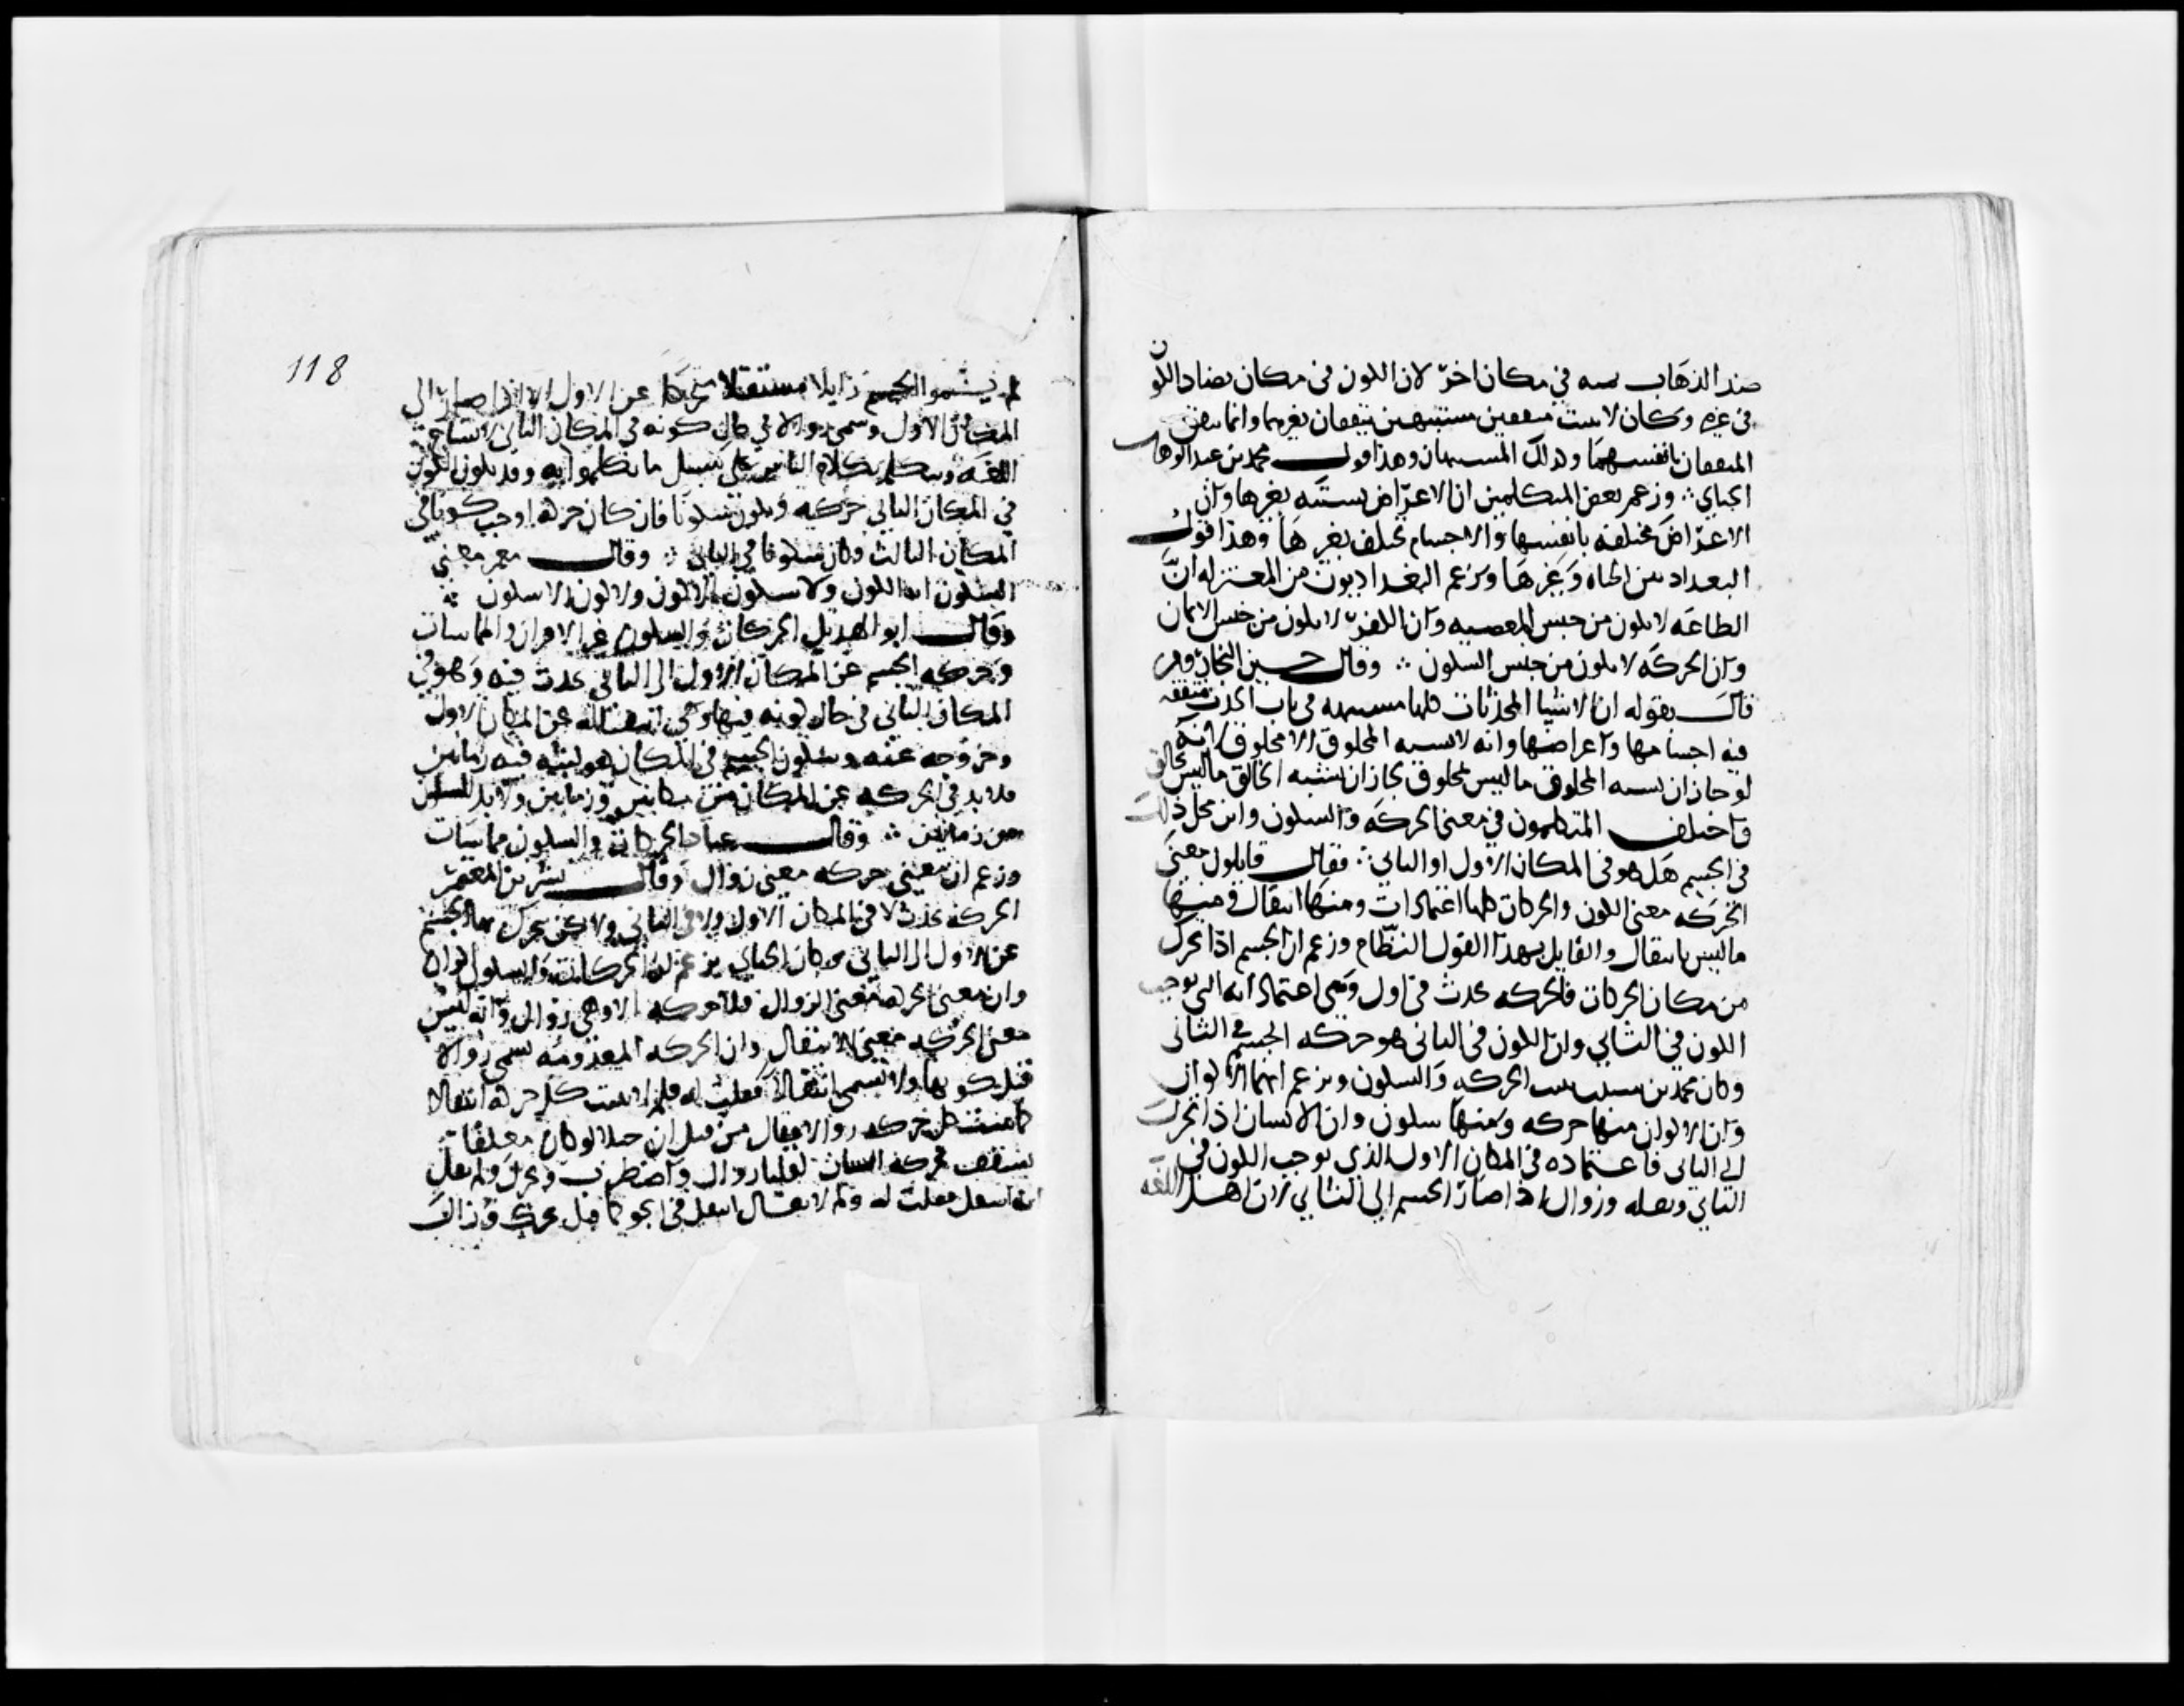 ضد الذهاب يمنه في مكان اخر لان اللون في مكان يضاد اللون
في غيره وكان لا يثبت متفقين مشتبهين يتفقان بغيرهما وانما يتفق
المتفقان بانفسهما وكذلك المشتبهان وهذا قول محمد بن عبد الوهاب
الجباي ∴ وزعم بعض المتكلمين ان الاعراض تشتبه بغيرها وان
الاعراض مختلفه بانفسها والاجسام تختلف بغيرها وهذا قول
البغداديين الخياط وغيرها ويزعم البغداديون من المعتزله ان
الطاعه لا تكون من جنس المعصيه وان الكفر لا يكون من جنس الايمان
وان الحركه لا تكون من جنس السكون ∴ وقال حسين النجار ومن
قال بقوله ان الاشيا المحدثات كلها مشتبهه في باب الحدث متفقه
فيه اجسامها واعراضها وانه لا يشبه المخلوق الا مخلوق لانه
لو جاز ان يشبه المخلوق ما ليس بمخلوق لجاز ان يشبه الخالق ما ليس بخالق
واختلف المتكلمون في معنى الحركه والسكون واين محل ذلك
في الجسم هل هو في المكان الاول او الثاني ∴ فقال قايلون معنى
الحركه معنى الكون والحركات كلها اعتمادات ومنها انتقال ومنها
ما ليس بانتقال والقايل بهذا القول النظام وزعم ان الجسم اذا تحرك
من مكان الى مكان فالحركه تحدث في الاول وهي اعتماداته التي توجب
الكون في الثاني وان الكون في الثاني هو حركه الجسم في الثاني
وكان محمد بن شبيب يثبت الحركه والسكون ويزعم انهما الاكوان
وان الاكوان منها حركه ومنها سكون وان الانسان اذا تحرك
الى الثاني فاعتماده في المكان الاول الذي يوجب الكون في
الثاني ونقله وزوال اذا صار الجسم الى الثاني لان اهل اللغه
118
لم يسموا الجسم زايلا منتقلا متحركا عن الاول الا اذا صار الى
المكان الاول وسمي زوالا في حال كونه في المكان الثاني لاتساع
اللغه ونتكلم بكلام الناس على سبيل ما تكلموا به وقد يكون الكون
في المكان الثاني حركه ويكون سكونا فان كان حركه اوجب كونا في
المكان الثالث وكان سكونا في الثاني ∴ وقال معمر معنى
السكون انه الكون ولا سكون الا كون ولا كون الا سكون ∴
وقال ابو الهذيل الحركات والسكون غير الاكوان والمماسات
وحركه الجسم عن المكان الاول الى الثاني تحدث فيه وهو في
المكان الثاني في حال كونه فيها وهي انتقاله عن المكان الاول
وخروجه عنه وسكون الجسم في المكان هو لبثه فيه زمانين
فلا بد في الحركه عن المكان من مكانين وزمانين ولا بد للسكون
من زمانين ∴ وقال عباد الحركات والسكون مماسات
وزعم ان معنى حركه معنى زوال وقال بشر بن المعتمر
الحركه تحدث لا في المكان الاول ولا في الثاني ولكن يتحرك بها الجسم
عن الاول الى الثاني وكان الجباي يزعم ان الحركات والسكون اكوان
وان معنى الحركه معنى الزوال فلا حركه الا وهي زوال وانه ليس
معنى الحركه معنى الانتقال وان الحركه المعدومه تسمى زوالا
قبل كونها ولا تسمى انتقالا فقلت له فلم لا تثبت كل حركه انتقالا
كما تثبت كل حركه زوالا فقال من قبل ان حبلا لو كان معلقا
بسقف فحركه انسان لقلنا زال واضطرب وتحرك ولم نقل
انه انتقل فقلت له ولم لا يقال انتقل في الجو كما قيل تحرك وزال